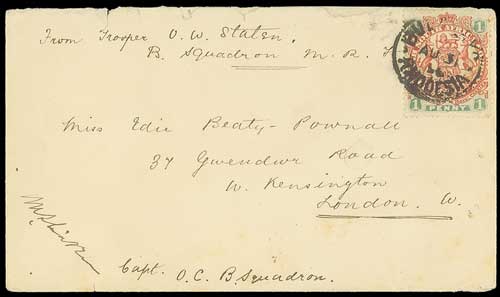 From Trooper O. W. Staten.
B. Squadron M. R.
Miss Edie Beaty-Pownall
37 Gwendwr Road
W. Kensington
London. W.
Capt.
O. C. B. Squadron.
RHODESIA
1 PENNY 1